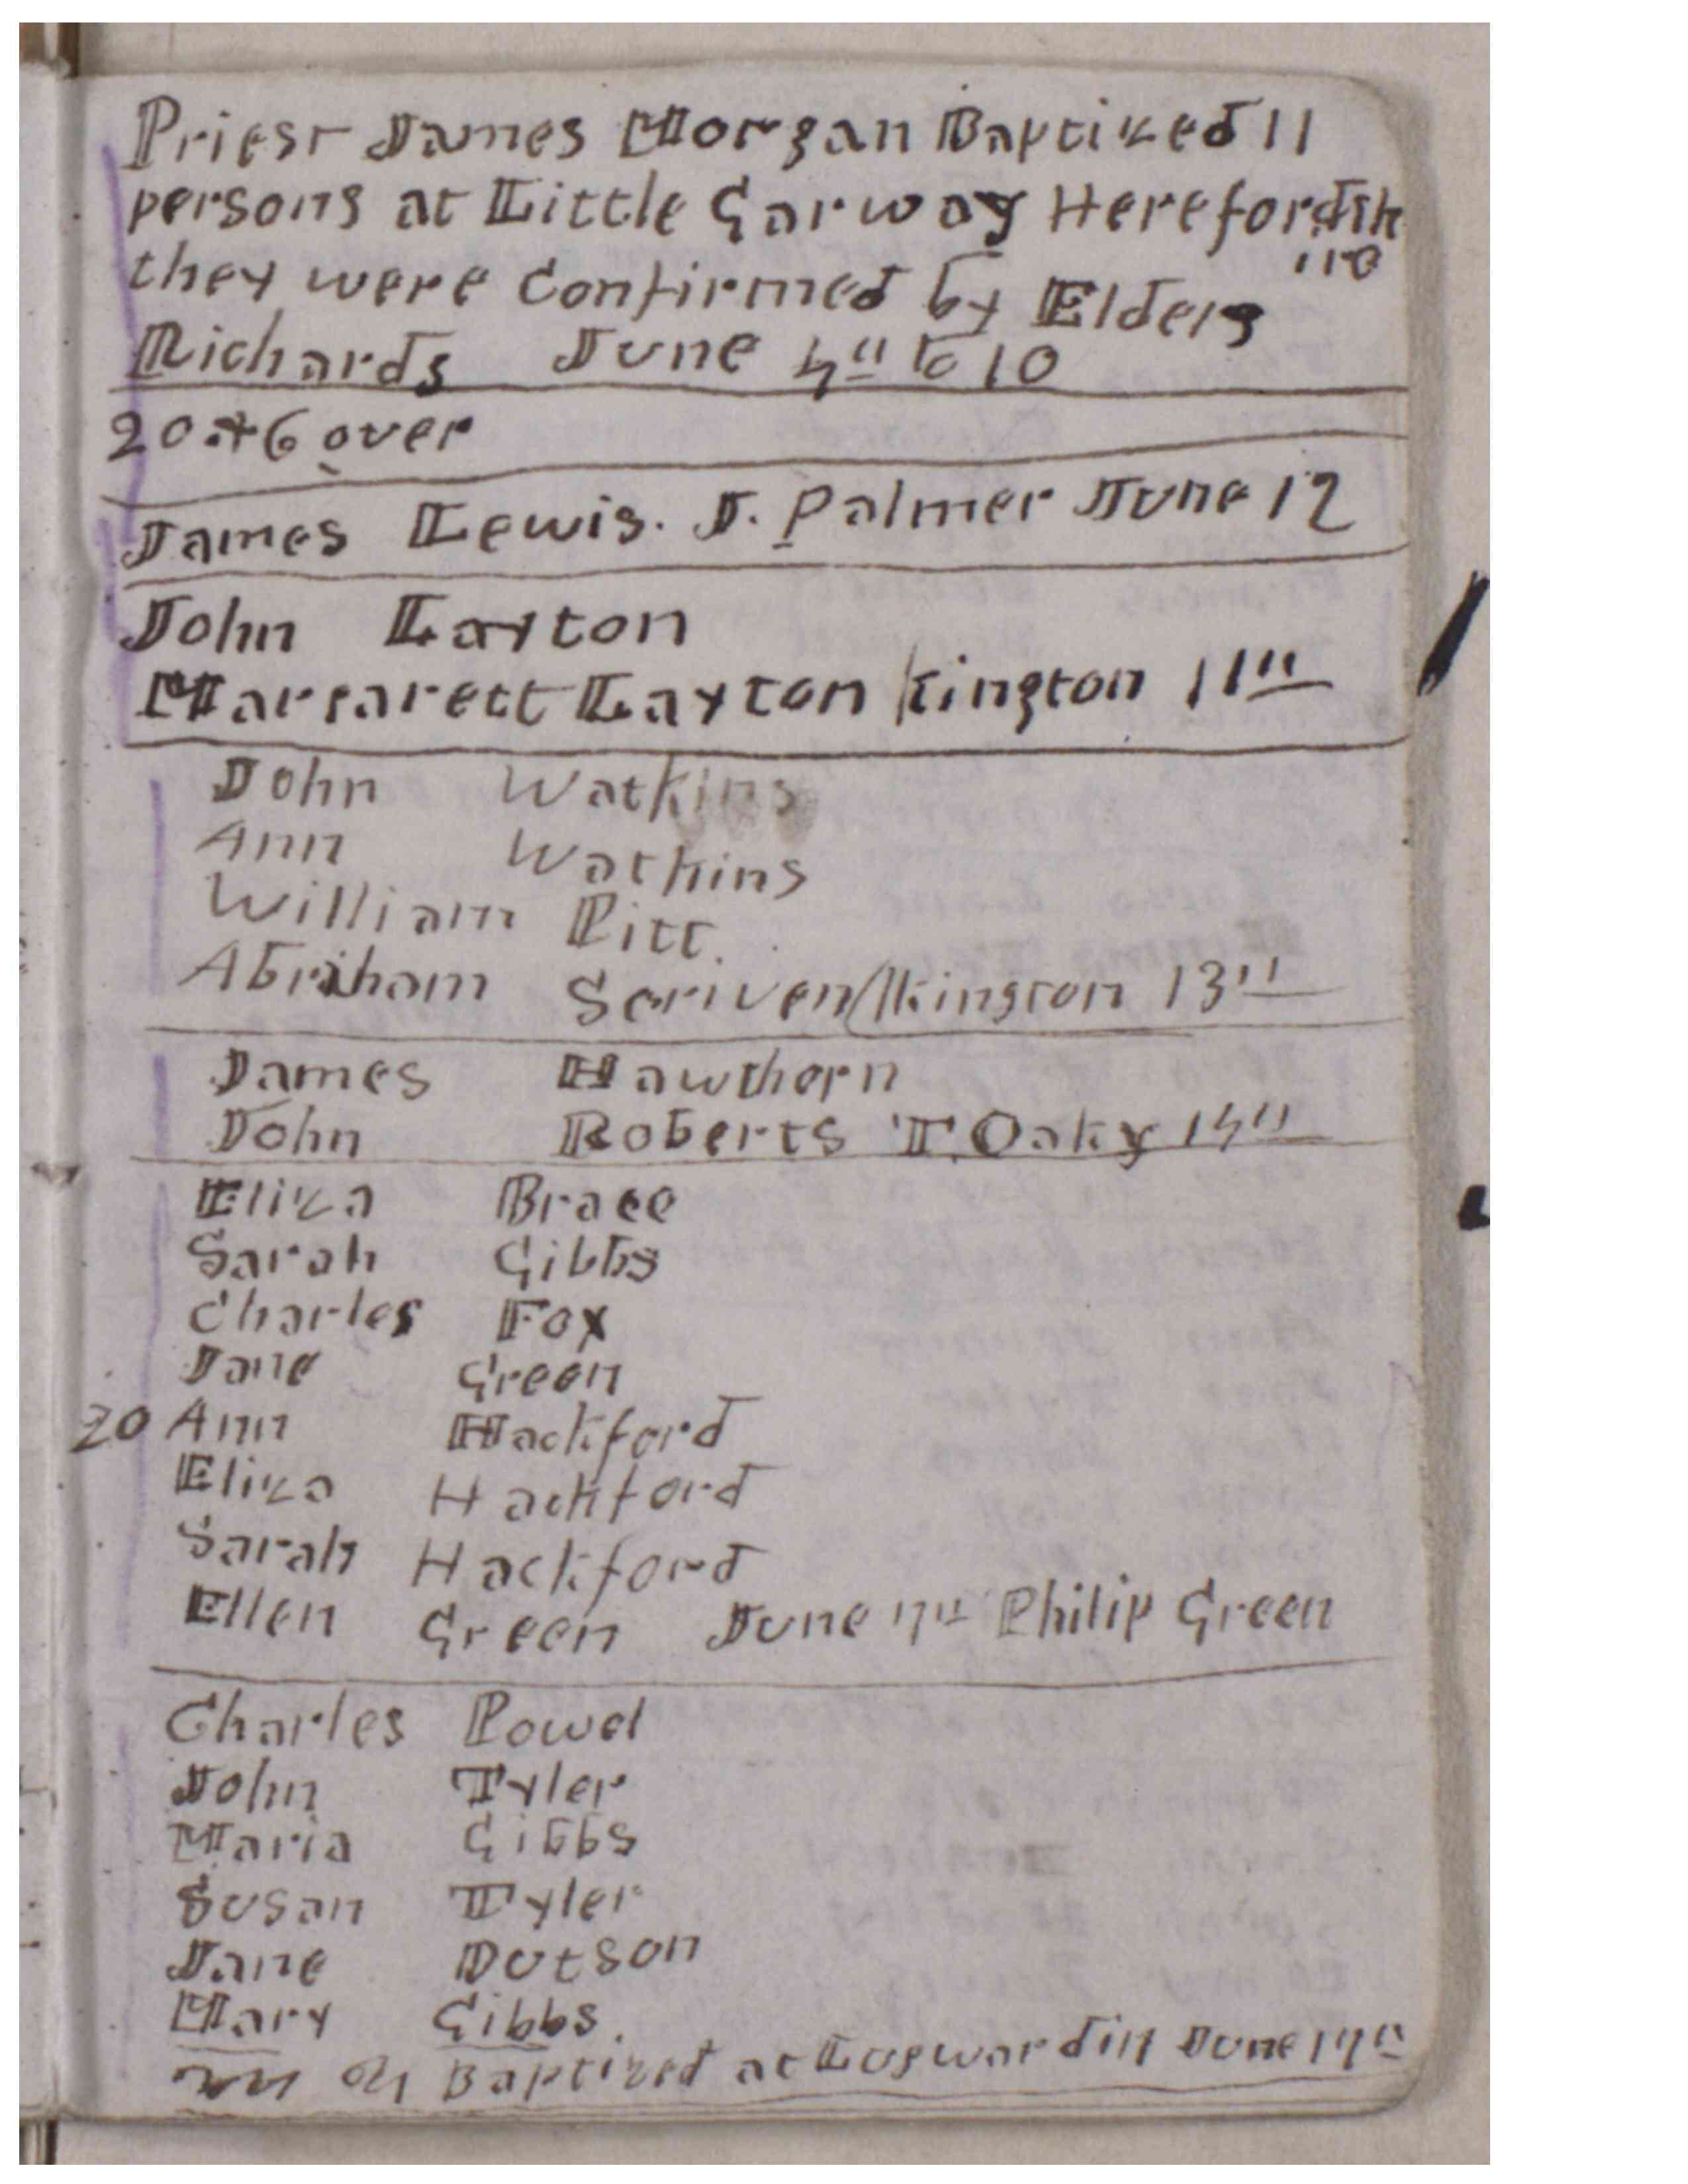 Priest James Morgan Baptized 11
persons at Little Garway Herefordsh
they were Confirmed by Elders
Richards June 4" to 10
20 + 6 over
James Lewis. J. Palmer June 12
John Layton
Margarett Layton Kington 11"
John Watkins
Ann Watkins
William Pitt.
Abraham Scriven Kington 13"
James Hawthorn
John Roberts T. Oaky 14"
Eliza Brace
Sarah Gibbs
Charles Fox
Jane Green
20 Ann Hackford
Eliza Hackford
Sarah Hackford
Ellen Green June 17" Philip Green
Charles Powel
John Tyler
Maria Gibbs
Susan Tyler
Jane Dutson
Mary Gibbs.
Baptized at Lugwardin June 17"